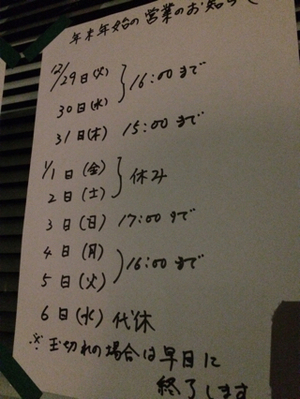 年末年始の営業のお知らせ
12/29日(火)
30日(水) } 16:00まで
31日(木) 15:00まで
1/1日(金)
2日(土) } 休み
3日(日) 17:00まで
4日(月)
5日(火) ) 16:00まで
6日(水) 代休
※玉切れの場合は早目に
終了します